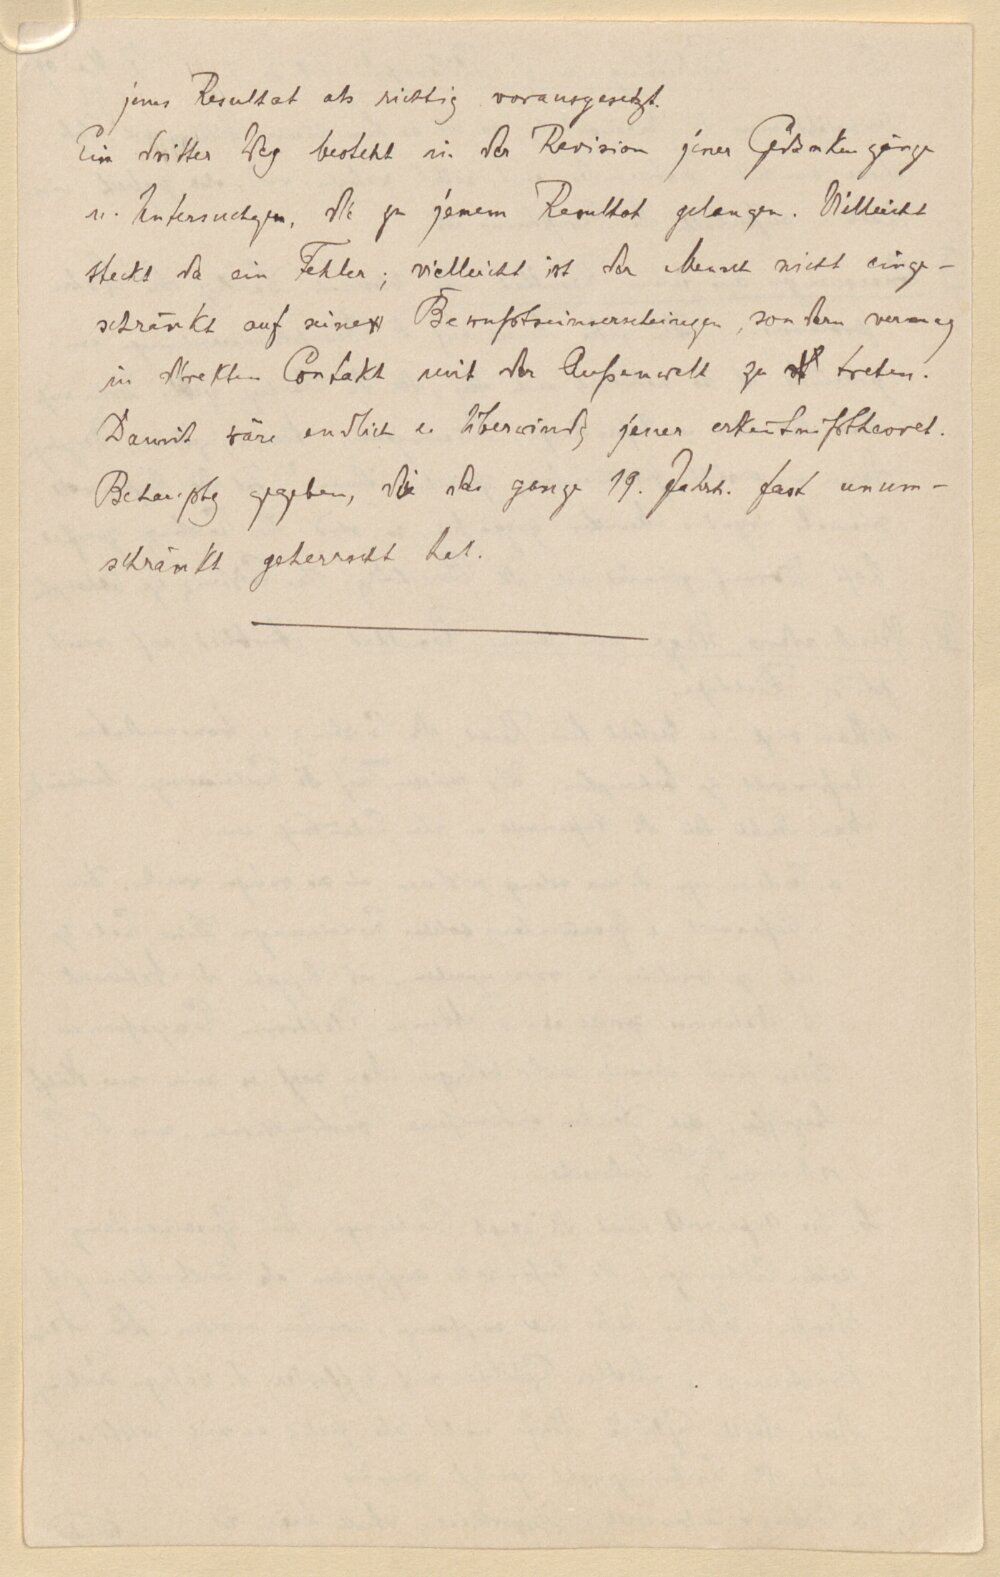 jenes Resultat als richtig vorausgesetzt.
Ein dritter Weg besteht in der Revision jener Gedankengänge
u. Untersuchgen, die zu jenem Resultat gelangen. Vielleicht
steckt da ein Fehler; vielleicht ist der Mensch nicht einge-
schränkt auf seine Bewußtseinserscheingen, sondern vermag
in direkten Contakt mit der Außenwelt zu treten.
Damit wäre endlich e Überwindg jener erkentnißtheoret.
Behauptg gegeben, die das ganze 19. Jahrh. fast unum-
schränkt geherrscht hat.